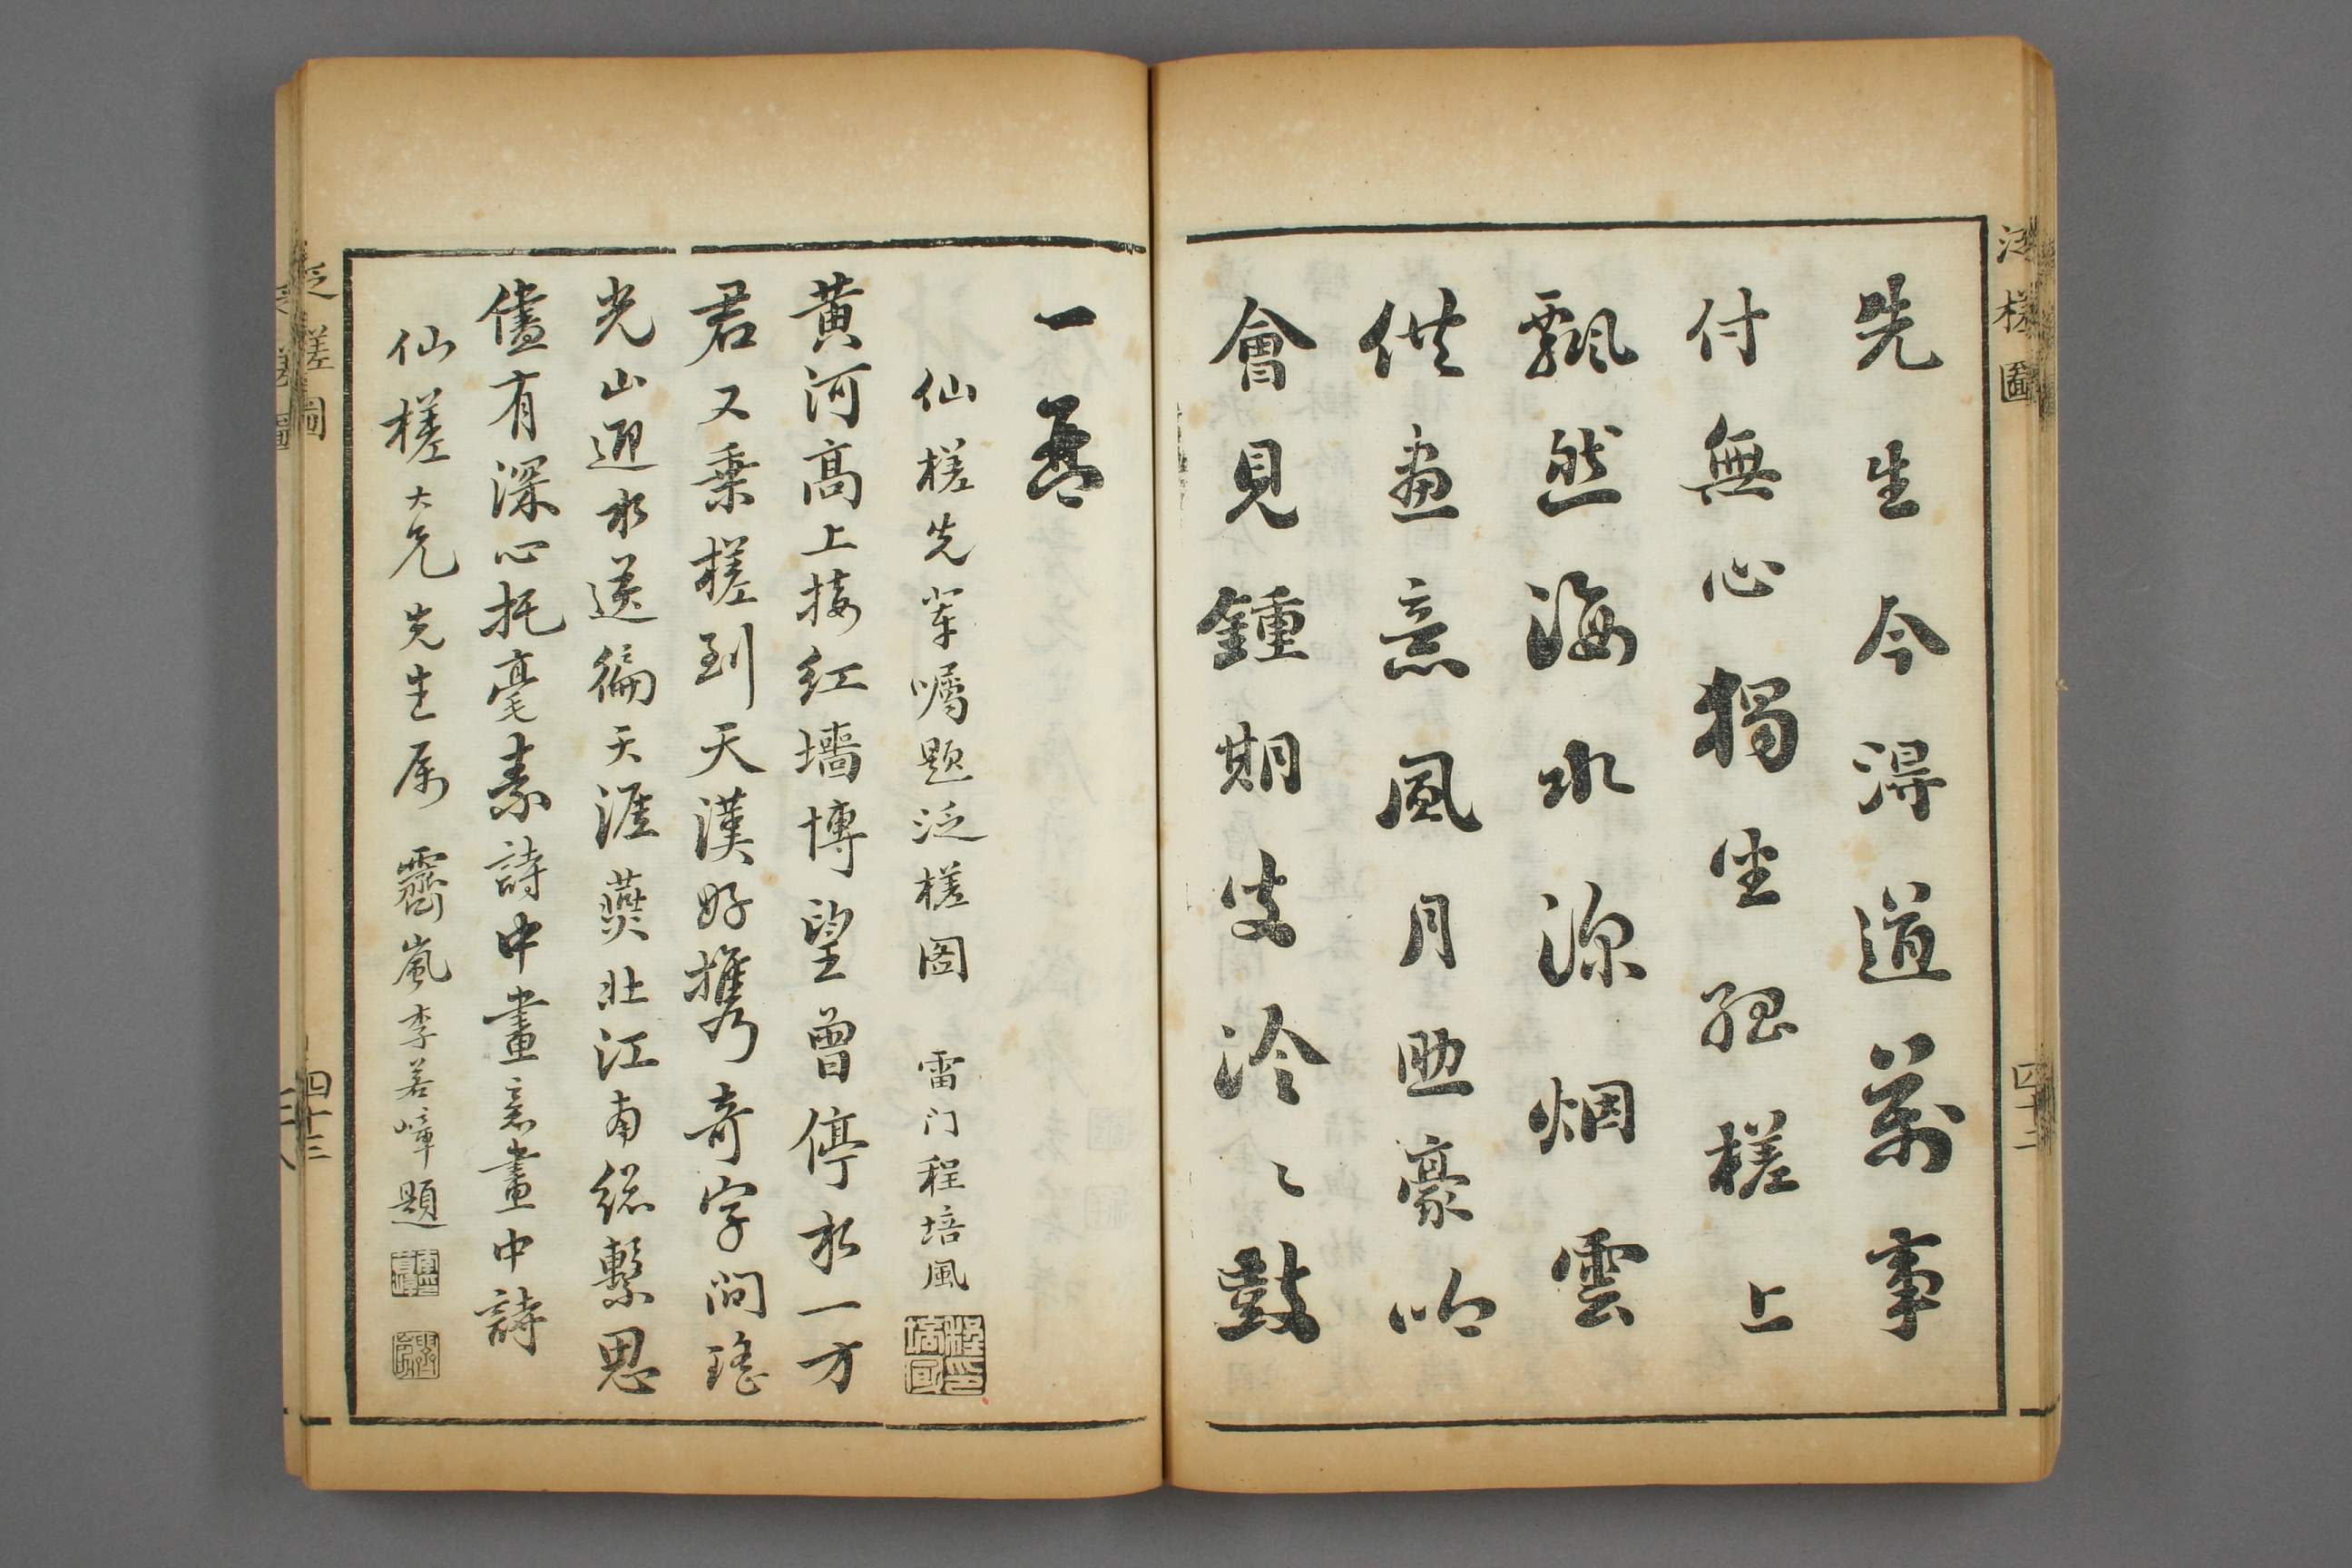 泛槎圖
四十二
先生今得道萬事
付無心獨坐孤槎上
飄然海水深烟雲
供畫意風月助豪吟
會見鍾期叟泠〻鼓
一琴
仙槎先輩囑題泛槎圖 雷门程培風
黄河高上接紅墻博望曾停水一方
君又乗槎到天漢好攜奇字問瑤
光山迎水送徧天涯燕北江南總繫思
儘有深心托毫素詩中畫意畫中詩
仙槎大兄先生属 霽嵐李若嶂題
泛槎圖
四十三